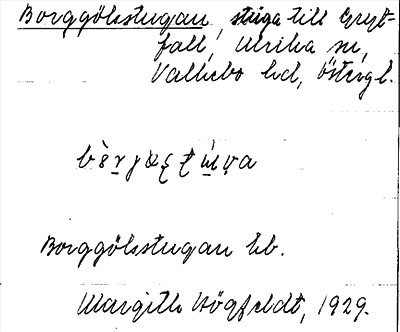 Borggölsstugan, stuga till Gryt-
fall, Ulrika sn,
Valkebo hd, Östergl.
Borggölsstugan hb.
Margith Högfeldt, 1929.